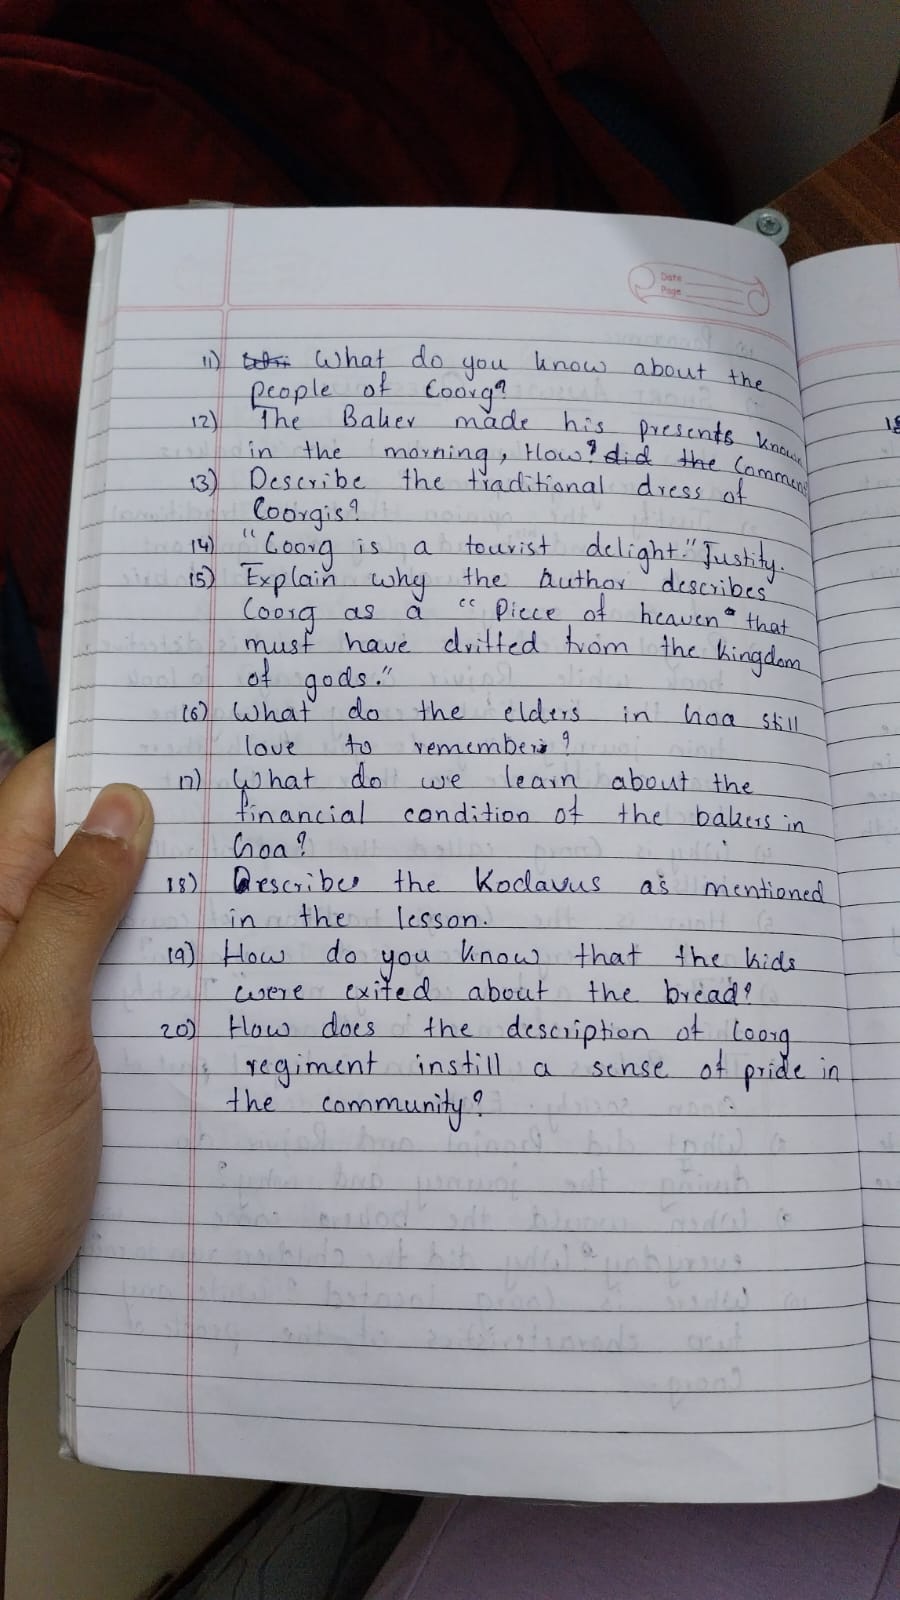 Date
Page
11) What do you know about the
people of Coorg?
12) The Baker made his presents known
in the morning, How? did the Comment
13) Describe the traditional dress of
Coorgis?
14) "Coorg is a tourist delight." Justify.
15) Explain why the Author describes
Coorg as a "Piece of heaven" that
must have drifted from the kingdom
of gods."
16) What do the elders in Goa still
love to remember?
17) What do we learn about the
financial condition of the bakers in
Goa?
18) Describe the Kodavus as mentioned
in the lesson.
19) How do you know that the kids
were exited about the bread?
20) How does the description of Coorg
regiment instill a sense of pride in
the community?